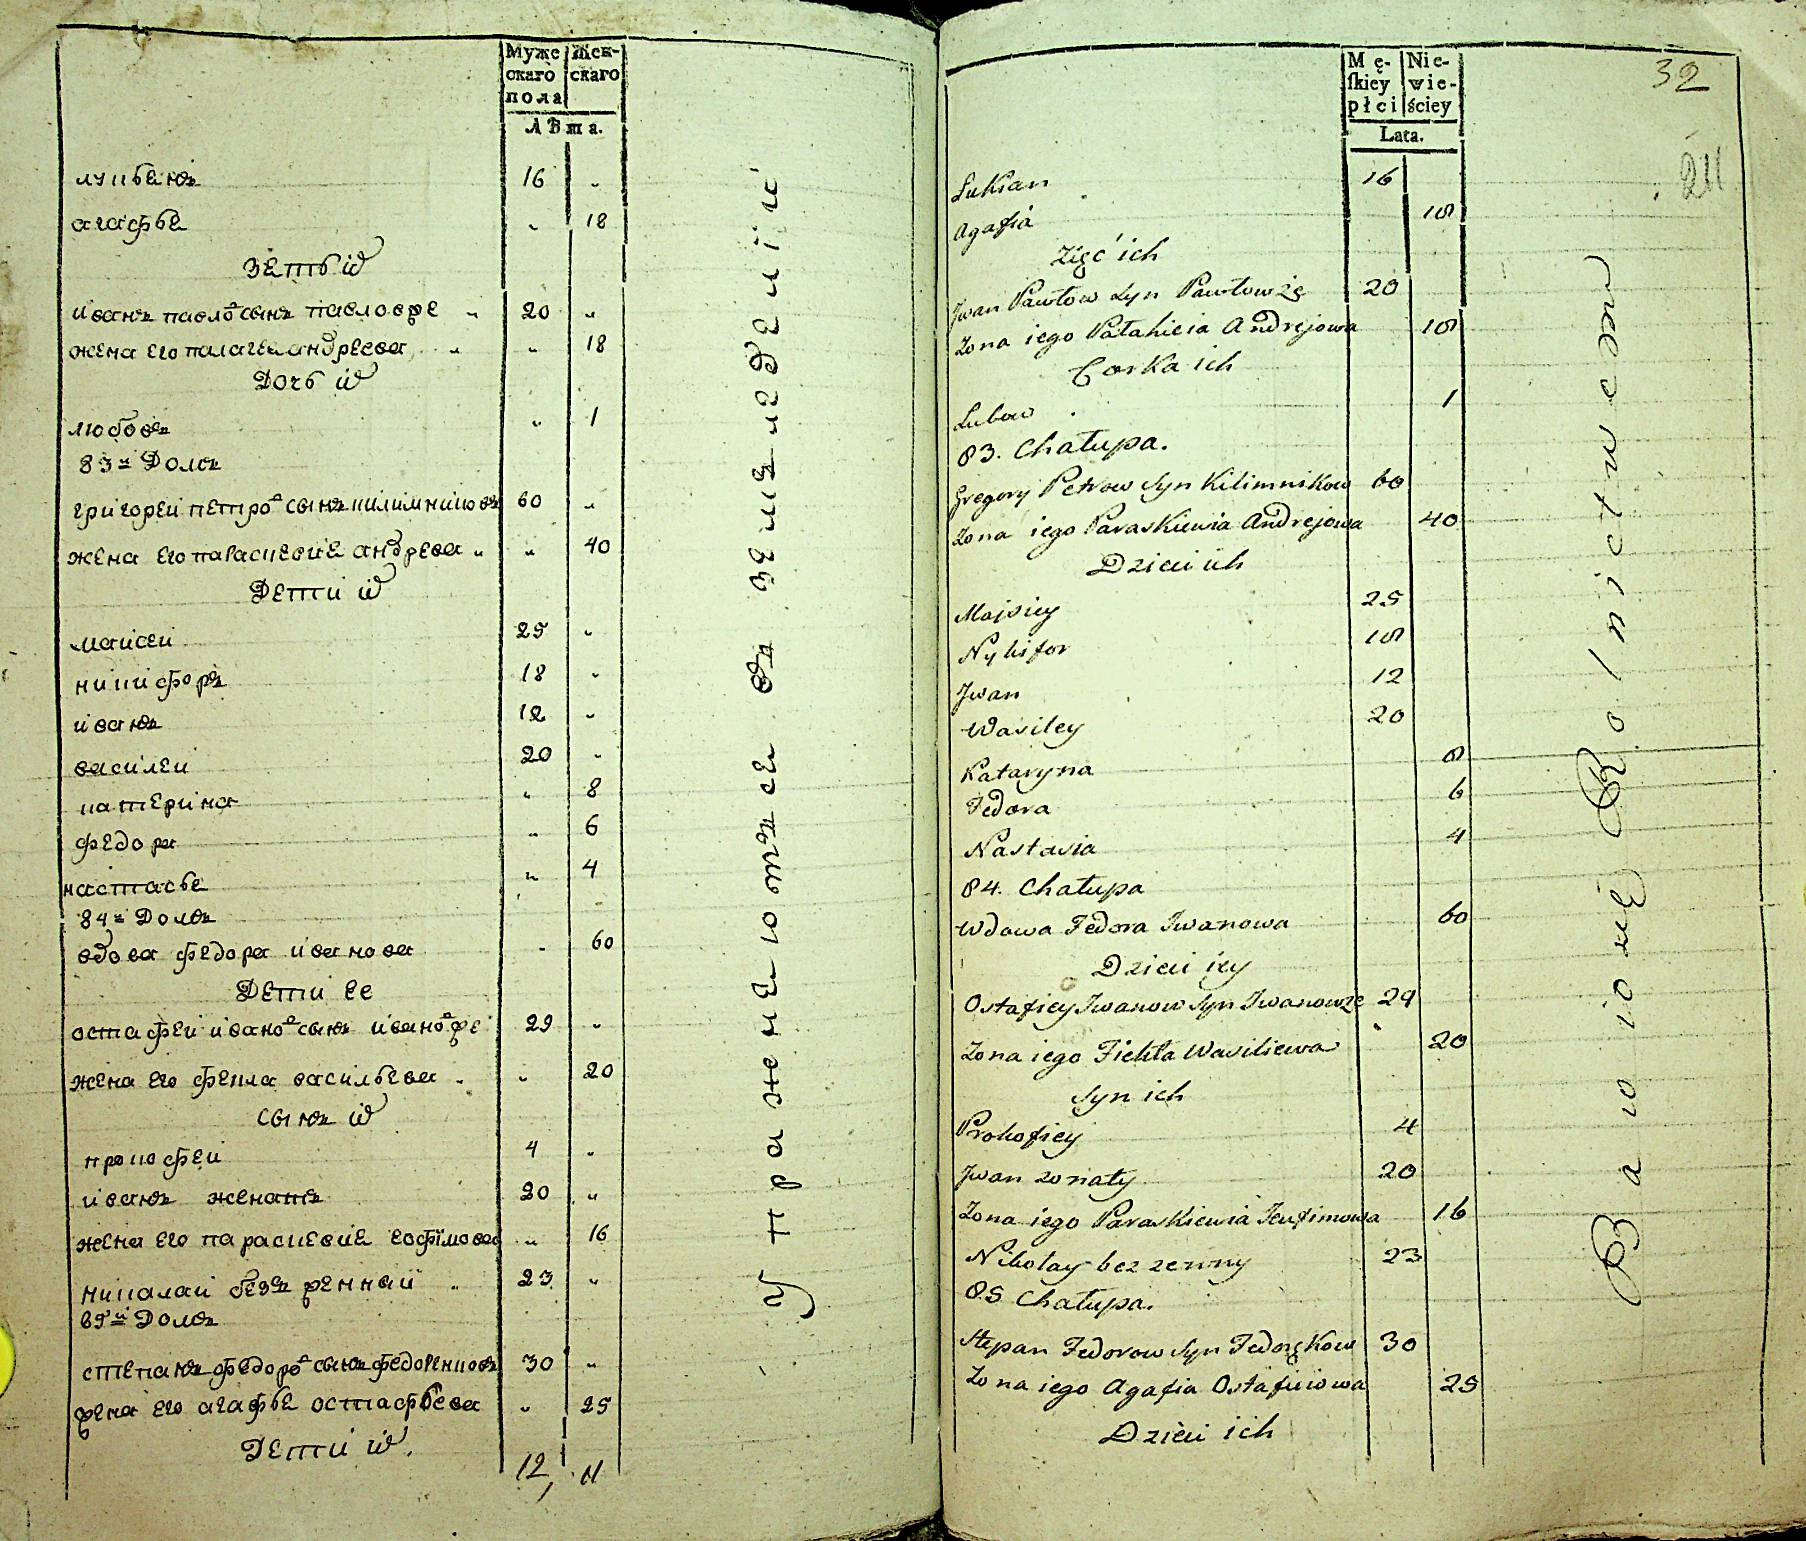 Муже
скаго
пола
Жен-
скаго
Лѣта.
лукьянъ 16 "
агафья " 18
зять иӽ
иванъ павловъ сынъ павловже " 20 "
жена его палагея андреева " " 18
Дочь иӽ
любовь " 1
83й Домъ
григореи петровъ сынъ килимниковъ 60 "
жена его параскевия андреева " " 40
Дети иӽ
маисеи 25 "
никифоръ 18 "
иванъ 12 "
василеи 20 "
катерина " 8
федора " 6
настасья " 4
84й Домъ
вдова федора иванова " 60
Дети ее
остафеи ивановъ сынъ ивановже 29 "
жена его фекла васильева " " 20
сынъ иӽ
прокофеи 4 "
иванъ женатъ 20 "
жена его параскевия ефимова " 16
николаи безженнаи " 23 "
85й Домъ
степанъ федоровъ сынъ федоренковъ 30 "
жена его агафья остафьева " 25
Дети иӽ
12, 11
Упражняются въ земледелїи
Mę-
skiey
płci
Nie-
wie-
ściey
Lata.
32
211
Lukian 16
Agafia 18
Zięć ich
Jwan Pawłow Syn Pawłowże 20
Żona iego Pałahieia Andrejowa 18
Corka ich
Lubow 1
83. Chałupa.
Gregory Petrow Syn Kilimnikow 60
Żona iego Paraskiewia Andrejowa 40
Dzieci ich
Mojsiey 25
Nykifor 18
Jwan 12
Wasiley 20
Kataryna 8
Fedora 6
Nastasia 4
84. Chałupa
Wdowa Fedora Jwanowa 60
Dzieci iey
Ostafiey Jwanow Syn Jwanowże 29
Żona iego Fiekła Wasiliewa 20
Syn ich
Prokofiey 4
Jwan żonaty 20
Żona iego Paraskiewia Jeufimowa 16
Nikołay bezżenny 23
85 Chałupa.
Stepan Fedorow Syn Fedorękow 30
Żona iego Agafia Ostafiiowa 25
Dzieci ich
Bawioię Rolnictwem